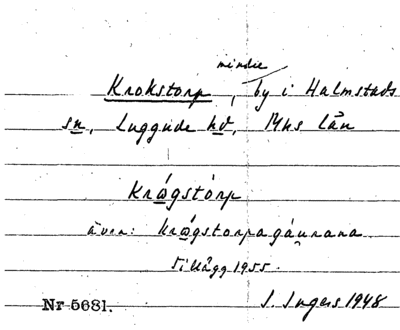 mindre
Krokstorp, by i Halmstads
sn, Luggude hd, Mhs län
Kråg̊stórp
även: Krågstorpagáurana
Tillägg 1955.
Nr 5681. I. Ingers 1948